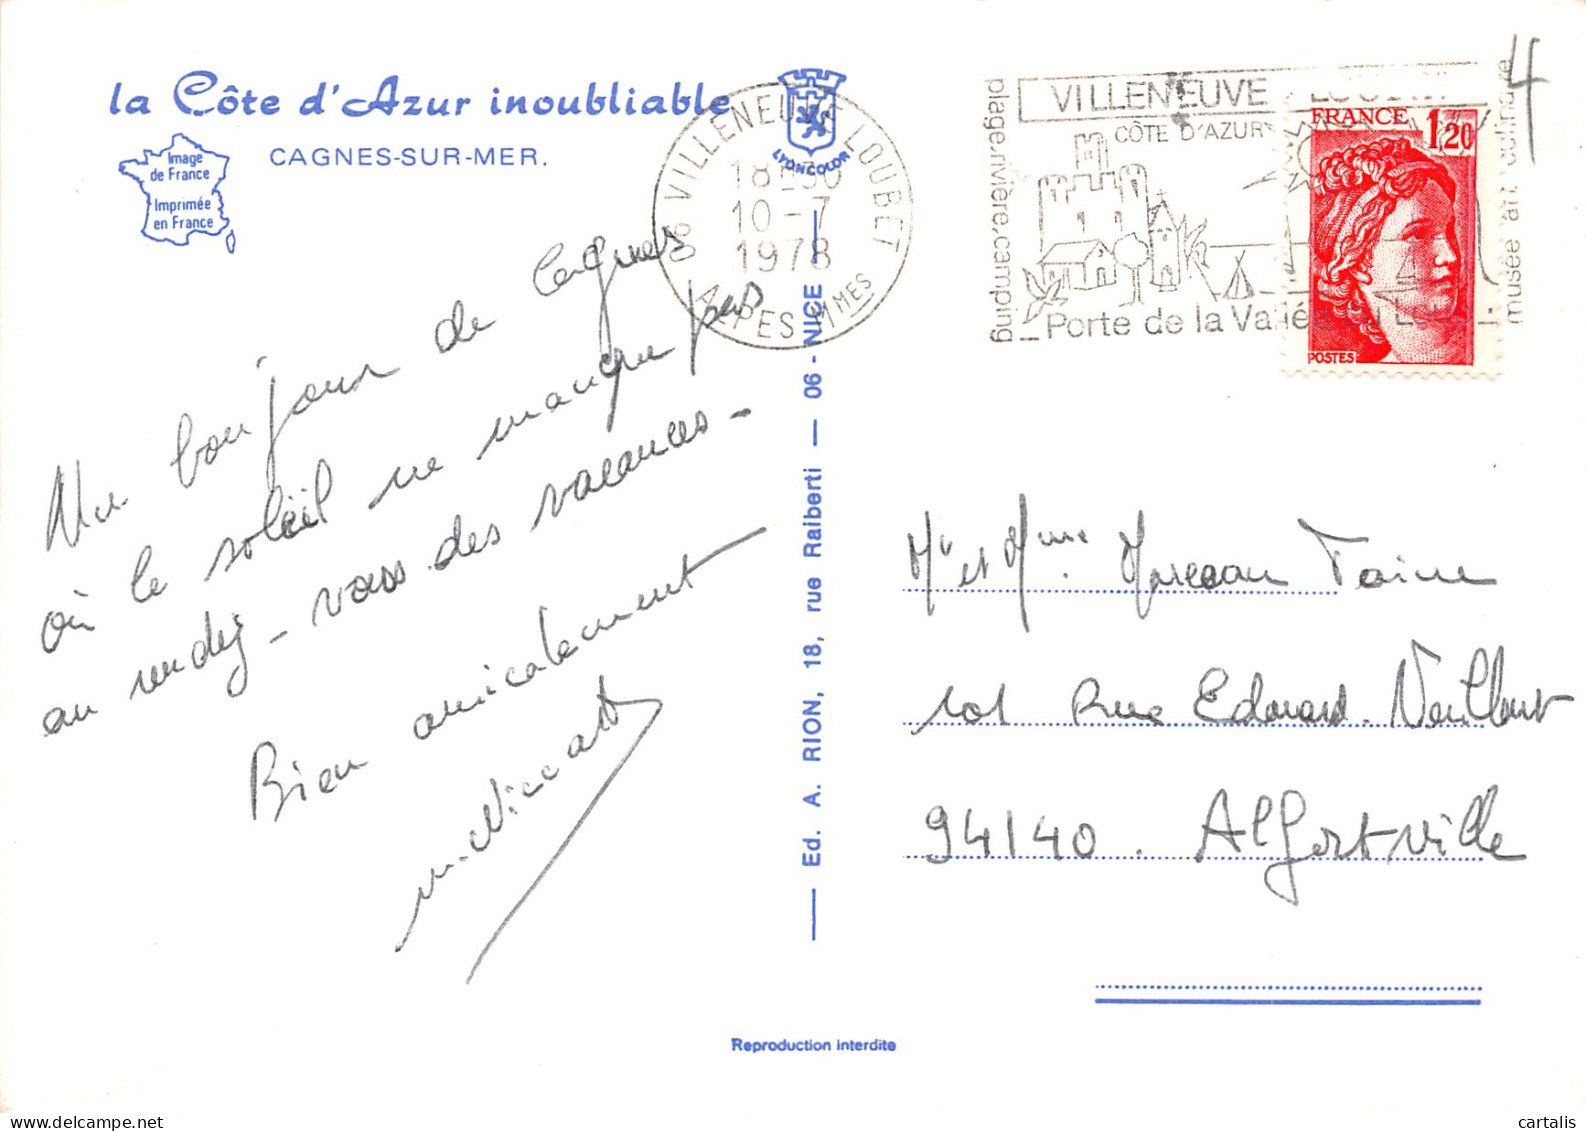 la Côte d'Azur inoubliable
CAGNES-SUR-MER.
Image
de France
Imprimée
en France
LYONCOLOR
06 VILLENEUVE-LOUBET
18-30
10-7
1978
ALPES-Mmes
VILLENEUVE LOUBET
CÔTE D'AZUR
plage.rivière.camping
musée art culinaire
Porte de la Vallée du Loup
FRANCE
1,20
POSTES
4
Un bonjour de Cagnes
où le soleil ne manque pas
au rendez-vous des vacances-
Bien amicalement
Ed. A. RION, 18, rue Raiberti — 06 - NICE
Mr et Mme. Marceau Taine
101 Rue Edouard. Vaillant
94140. Alfortville
Reproduction interdite
cartalis